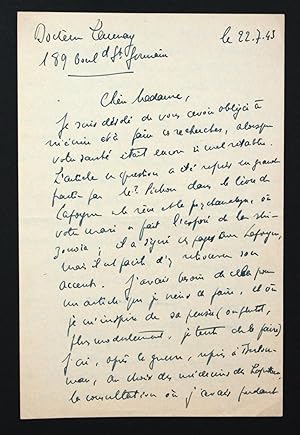 Docteur
le 22.7.43
189 Boul d St Germain
Chère Madame,
Je suis désolé de vous avoir obligé à
m'écrire et à faire ces recherches, alors que
votre santé était encore
L'article en question a été repris en grande
partie par le Dr Pichon dans le livre de
Laforgue le rêve et la psychanalyse, où
votre mari a fait l'exposé de la schi-
zonoia ; il a signé ces pages avec Laforgue,
mais il est facile d'y retrouver son
accent. J'avais besoin de cela pour
un article que je viens de faire, et où
je m'inspire de sa pensée (ou plutôt,
plus modestement, je tente de le faire)
J'ai, après la guerre, repris à
au choix des médecins des Hôpitaux
la consultation où j'avais pendant